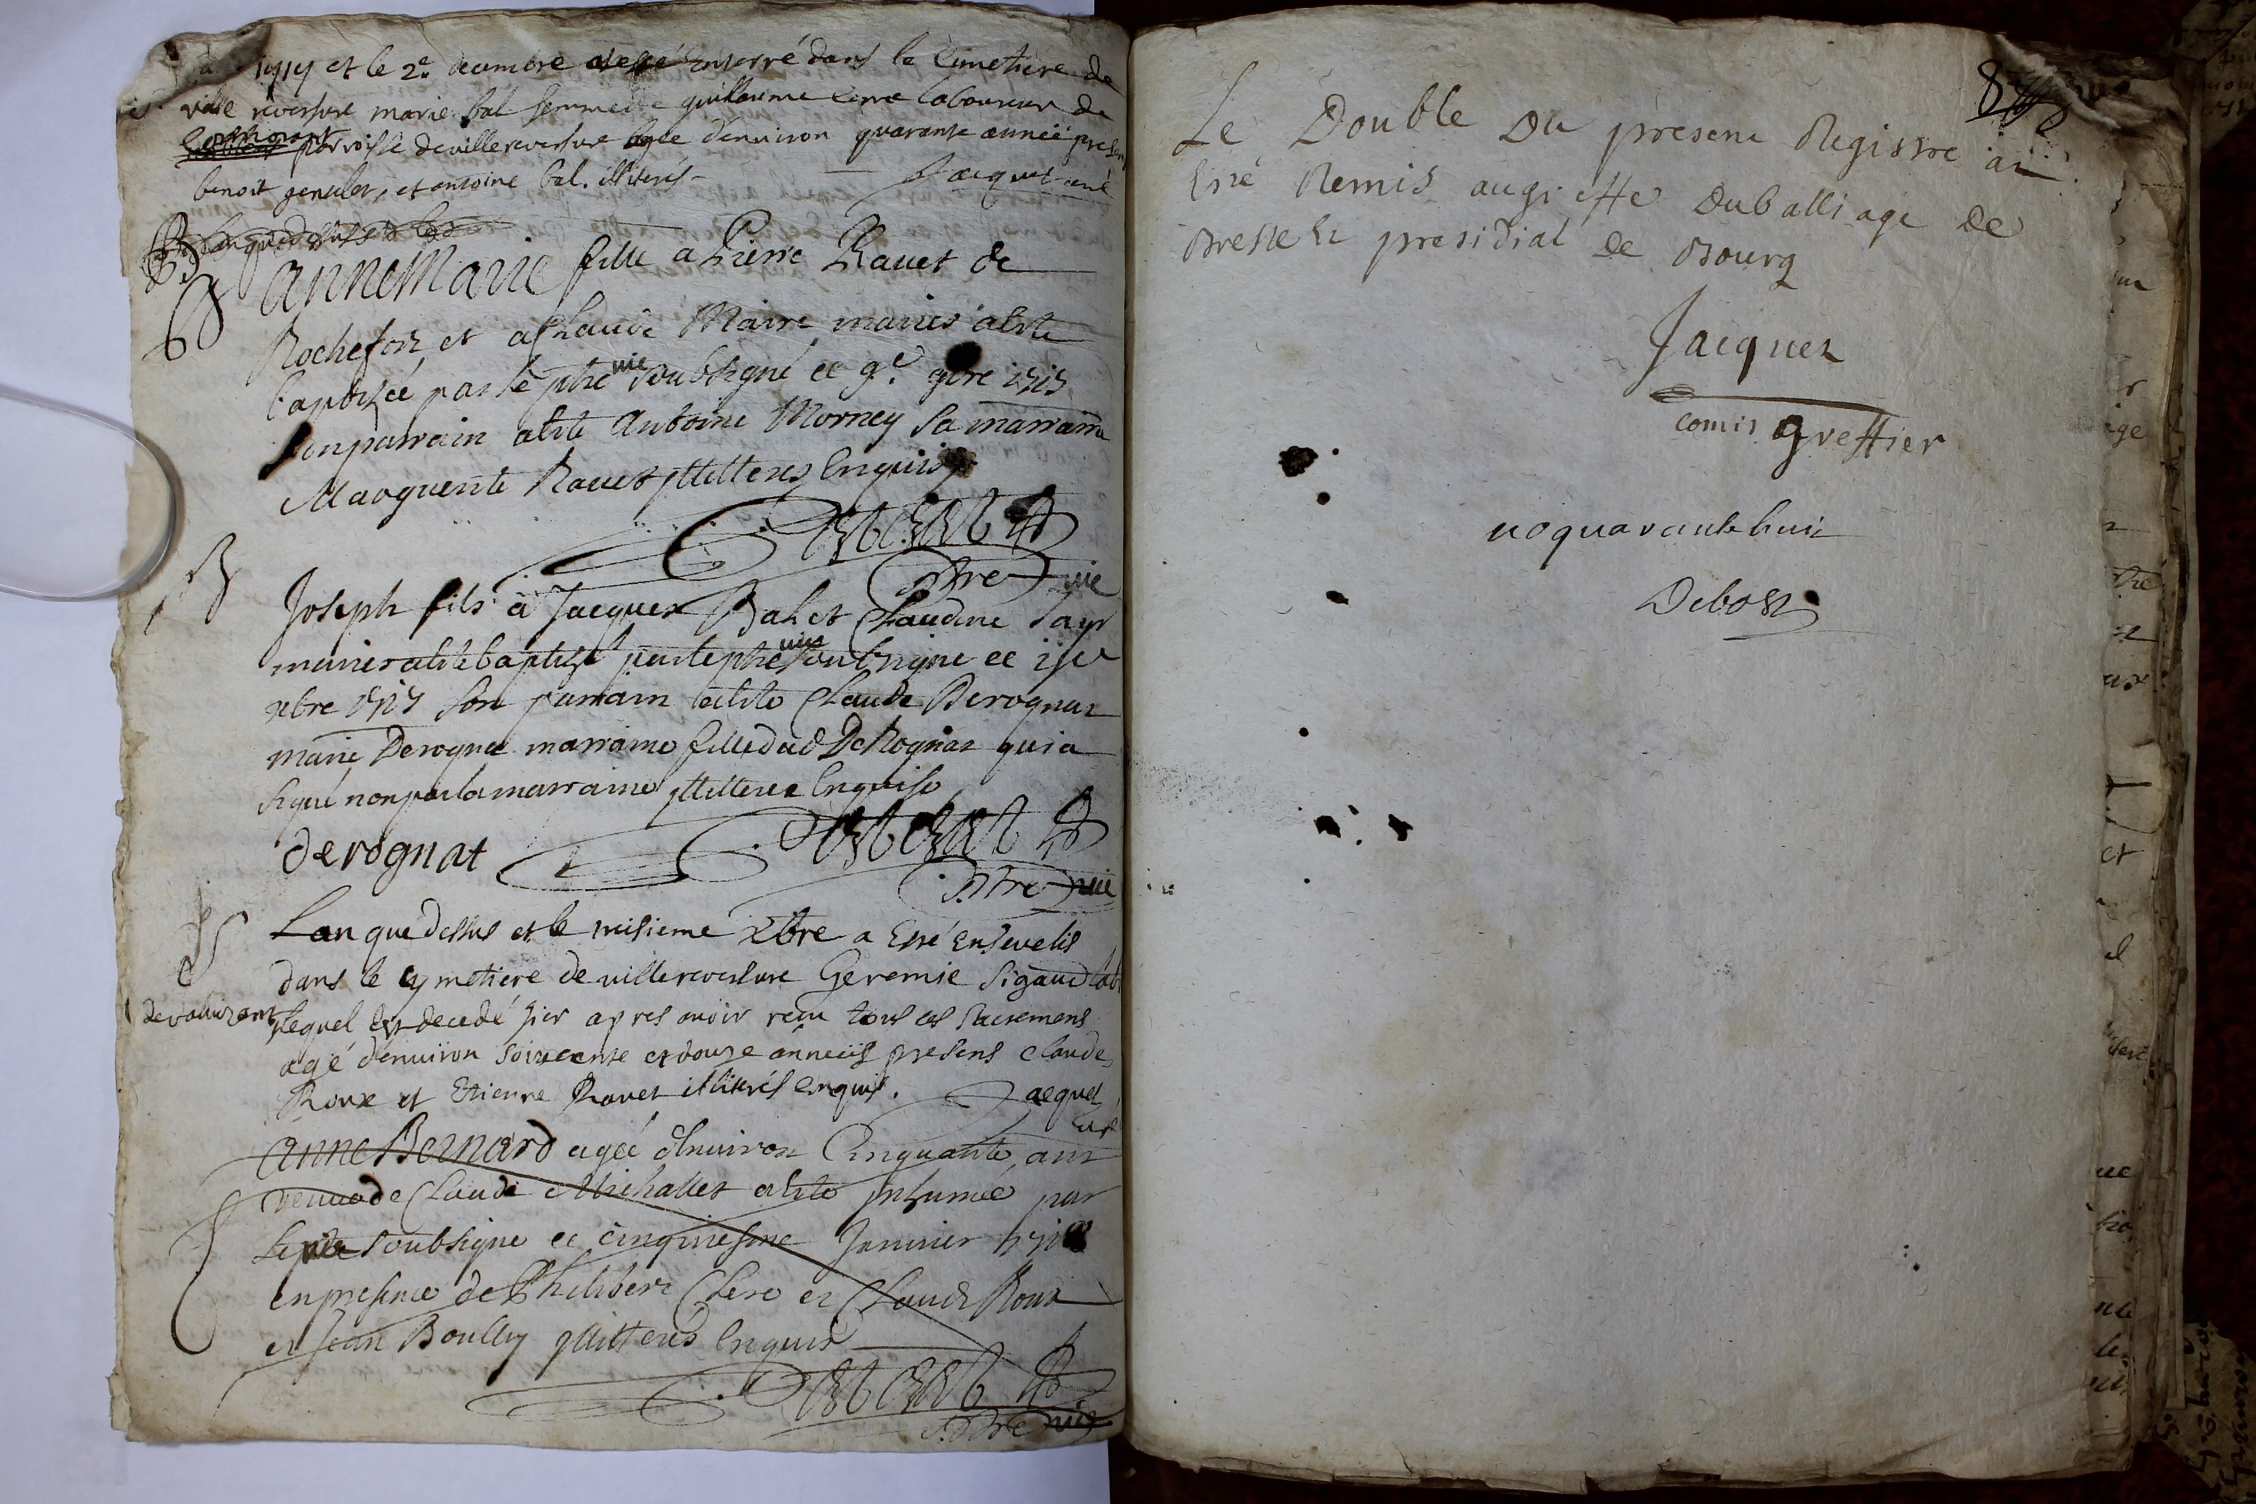 et le 2e decembre a esté Enterré dans le Cimetiere de
ville reversure marie bal femme de guillaume laboureur de
parroisse de villereversure agée d'environ quarante année presens
benoit et antoine bal. illiterés Jacquet curé
L'an que dessus et le
B
anne Marie fille a Pierre Ravet de
Rochefort et a Claude Maire mariés a esté
baptisée par le pbre vic soubsigné ce 9e 9bre 1717
son parrain a esté Antoine Morney sa marraine
Marguerite Ravet illiteres Enquis
pbre vic
B
Joseph fils à Jacques Bal et Claudine
maries a esté baptisé par le pbre vic soubsigné ce
xbre 1717 son parrain a esté Claude Derognat
marie Derognat marraine fille dud DeRognat qui a
signé non pas la marraine illiteree Enquise
derognat
pbre vic
S
L'an que dessus et le troisieme Xbre a Esté Ensevelis
dans le cymetiere de villereversure Geremie Sigaud lab
lequel Est decedé hier apres avoir recu tous ces sacremens
agé d'environ soixcente et douze anneés presens claude
Roux et Etienne Ravet illiterés enquis. Jacquet
curé
anne Bernard agée d'Environ Cinquante ans
veuve de Claude Michallet a esté inhumée par
le pbre soubsigne ce cinquiesme Janvier
en presence de Philibert Clerc et Claude Roux
et Jean Boully illiterés Enquis
pbre vic
Le Double Du present Registre a
Esté Remis au greffe Du balliage de
Bresse Et presidial de Bourg
Jacquet
comis greffier
no quarante huit
Debost